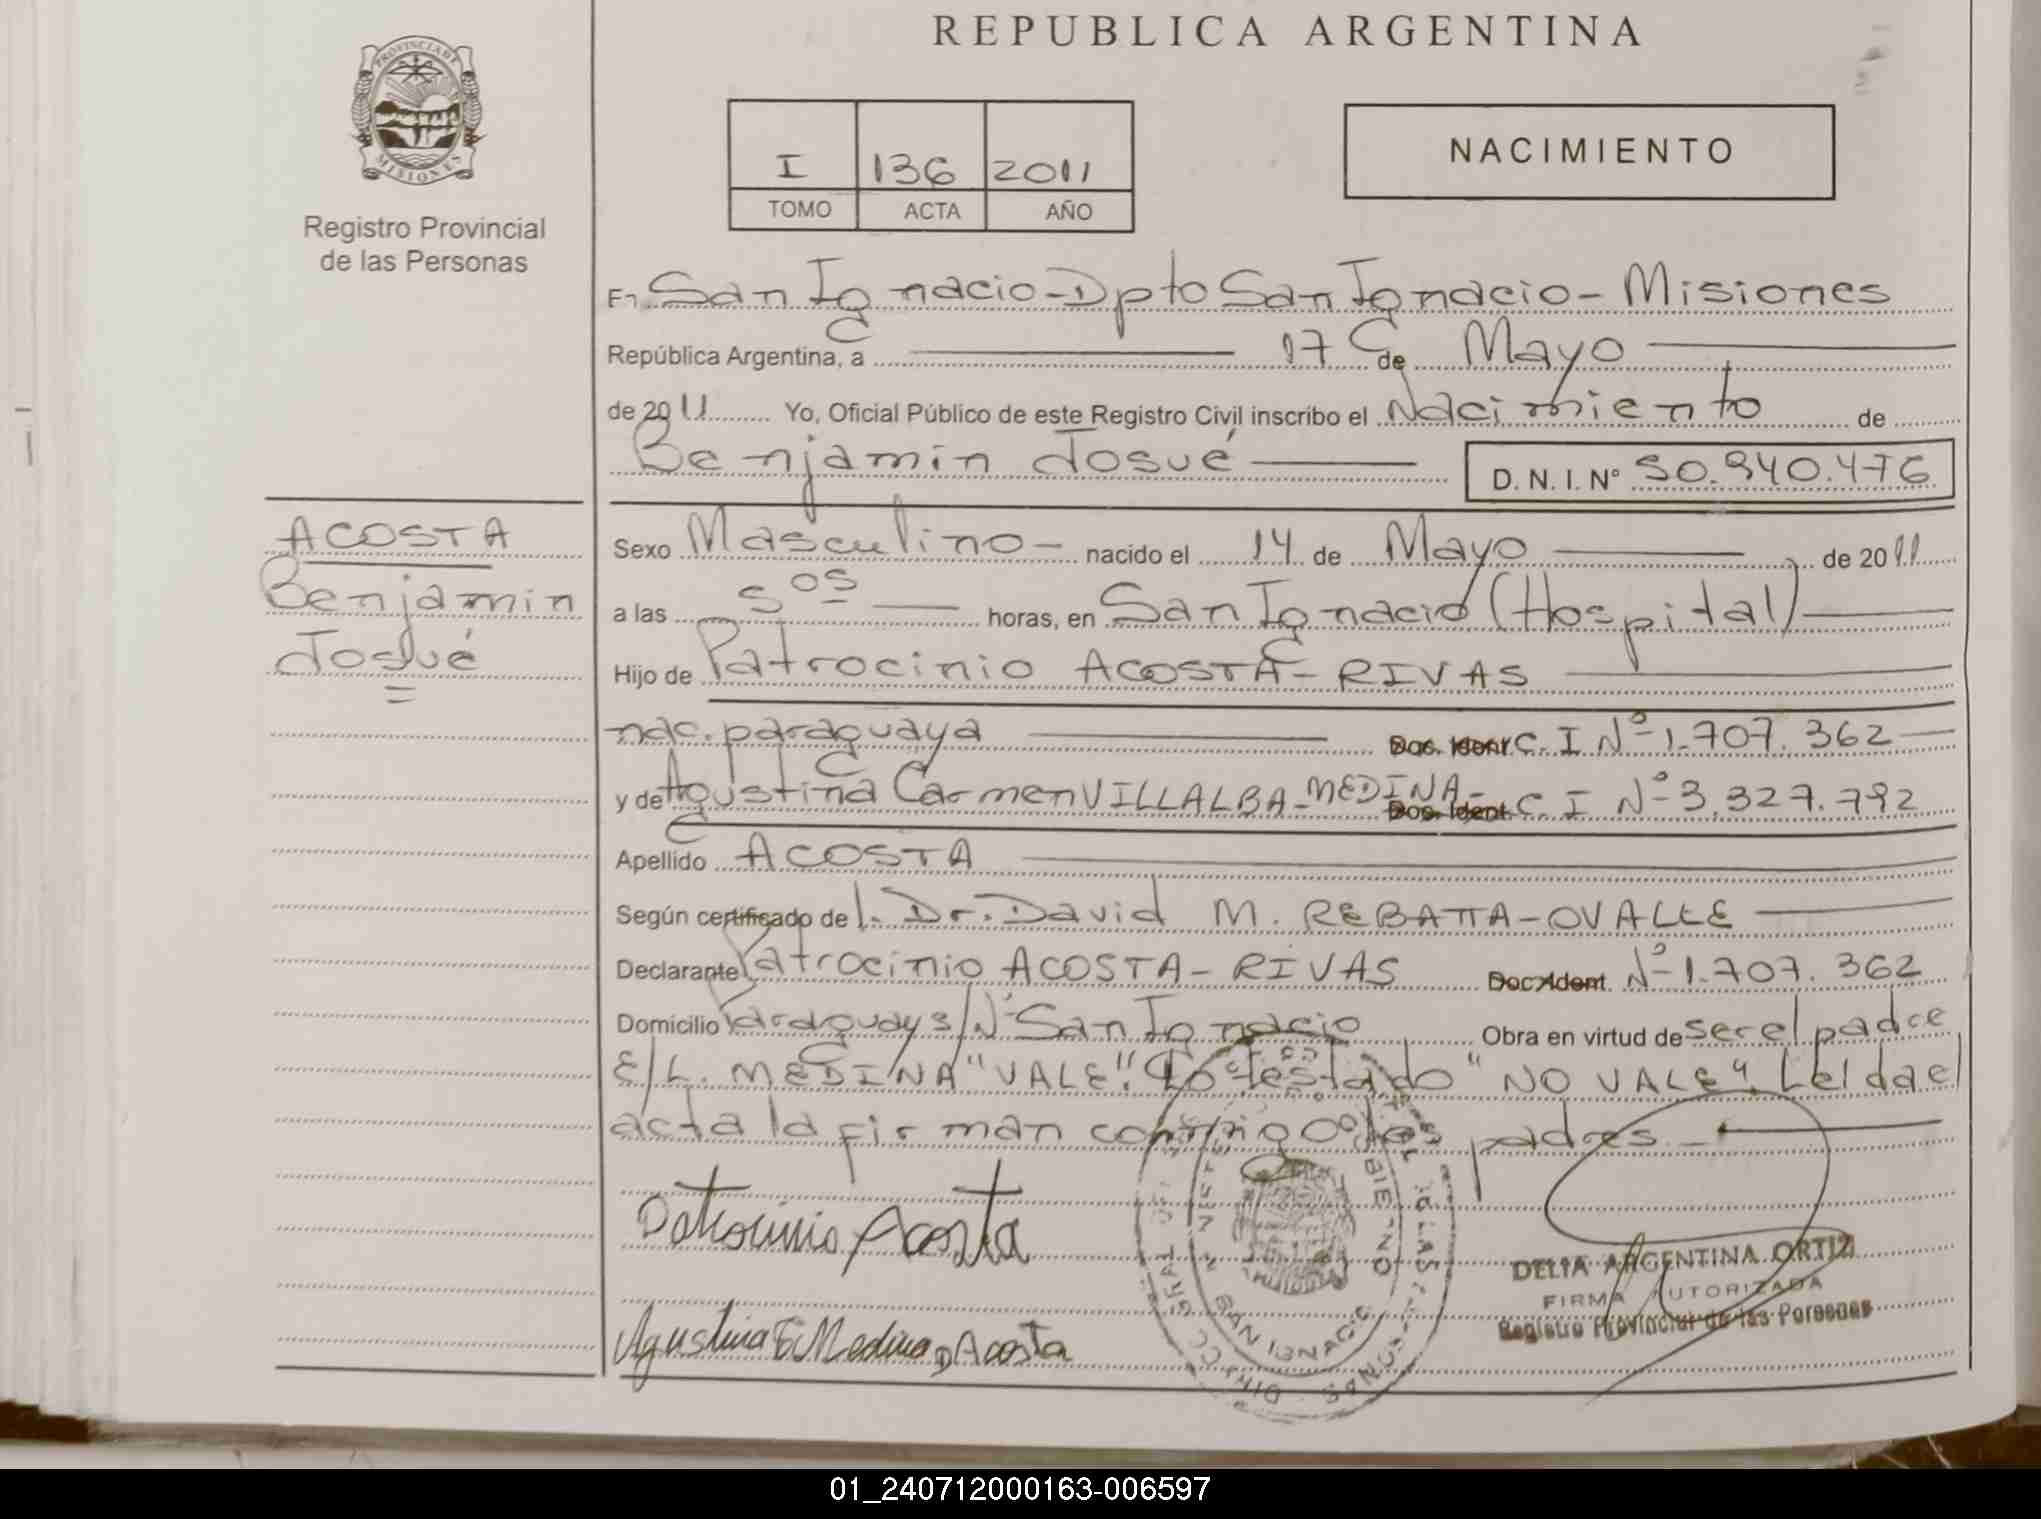 REPUBLICA ARGENTINA
PROVINCIA DE
MISIONES
Registro Provincial
de las Personas
I 136 2011
TOMO ACTA AÑO
NACIMIENTO
En San Ignacio-Dpto San Ignacio-Misiones
República Argentina, a 17 de Mayo
de 2011 Yo, Oficial Público de este Registro Civil inscribo el Nacimiento de
Benjamin Josué D. N. I. Nº 50.940.476
ACOSTA
Benjamin
Josué
Sexo Masculino - nacido el 14 de Mayo de 2011
a las 5⁰⁵ horas, en San Ignacio (Hospital)
Hijo de Patrocinio ACOSTA-RIVAS
nac. paraguaya Doc. Ident C. I Nº 1.707.362
y de Agustina Carmen VILLALBA-MEDINA- Doc. Ident C. I Nº 3.327.792
Apellido ACOSTA
Según certificado de l. Dr. David M. REBATTA-OVALLE
Declarante Patrocinio ACOSTA-RIVAS Doc. Ident Nº 1.707.362
Domicilio Paraguay s/Nº San Ignacio Obra en virtud de ser el padre
E/L. MEDINA "VALE". Lo testado "NO VALE". Leída el
acta la firman conmigo los padres
Patrocinio Acosta
Agustina Medina D Acosta
SAN IGNACIO
DELIA ARGENTINA ORTIZ
FIRMA AUTORIZADA
Registro Provincial de las Personas
01_240712000163-006597